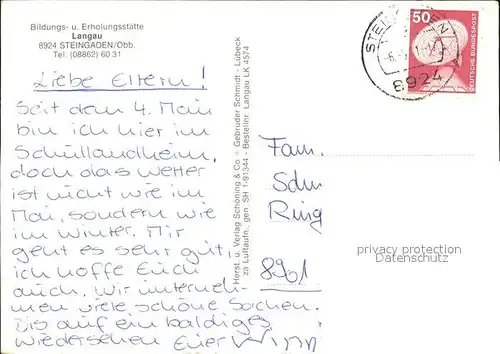 Bildungs- u. Erholungsstätte
Langau
8924 STEINGADEN/Obb.
Tel. (08862) 60 31
Liebe Eltern!
Seit dem 4. Mai
bin ich hier im
Schullandheim,
doch das Wetter
ist nicht wie im
Mai, sondern wie
im Winter. Mir
geht es sehr gut,
ich hoffe Euch
auch. Wir unterneh-
men viele schöne Sachen.
Bis auf ein baldiges
Wiedersehen Euer
Herst. u. Verlag Schöning & Co + Gebrüder Schmidt - Lübeck
za Luftaufn., gen. SH 1-91344 - Bestellnr. Langau LK 4574
50
DEUTSCHE BUNDESPOST
8924
Fam.
Sdm
Ring
8901
privacy protection
Datenschutz